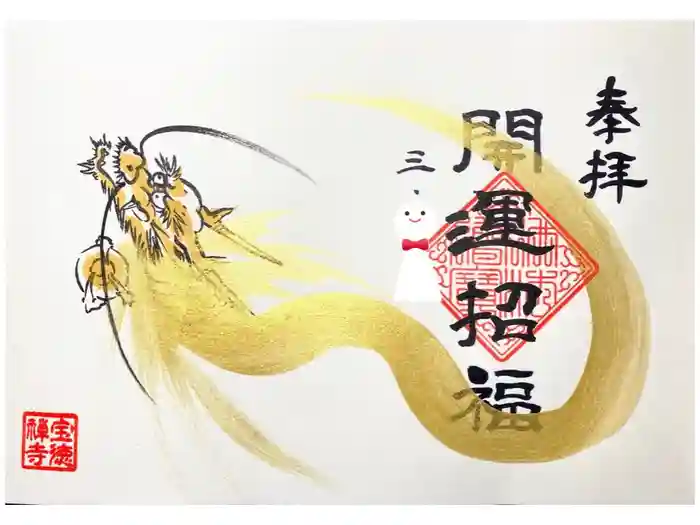 奉拝
開運招福
三、
宝徳
禅寺